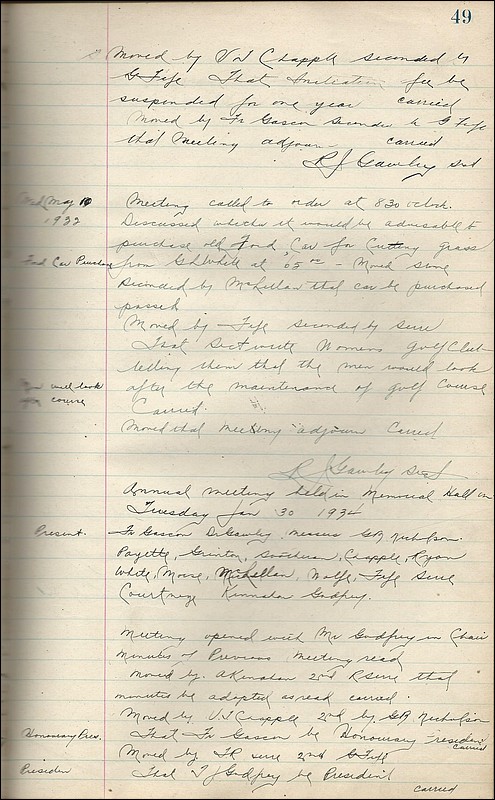 49
Moved by V J Chapple seconded by
G Fife That Initiation fee be
suspended for one year carried
Moved by Fr Gascon Seconder by G Fife
that Meeting adjourn carried
R J Gawley Sect
Wed May 10 Meeting called to order at 8 30 oclock.
1933 Discussed whether it would be advisable to
purchase old Ford Car for Cutting grass
Ford Car Purchase from G L White at 65 00 - Moved
seconded by McLellan that car be purchased
passed
Moved by Fife seconded by Serre
That Sect write Womens Golf Club
telling them that the men would look
men will look after the maintenance of golf course
course Carried.
Moved that meeting adjourn Carried
R J Gawley Sect
Annual meeting held in Memorial Hall on
Tuesday Jan 30 1934
Present. Fr Gascon Gawley, messers G B Nicholson
Payette, Grinton, Chapple, Ryan
White, Morse, McLellan, Wolfe, Fife Serre
Courtney Kinnahan Godfrey.
Meeting opened with Mr Godfrey in Chair
Minutes of Previous Meeting read
moved by A Kinahan 2nd R Serre that
minutes be adopted as read carried.
Moved by V J Chapple 2nd by G B Nicholson
Honourary Pres. That Fr Gascon be Honourary President
carried
Moved by Serre 2nd G Fife
President That T J Godfrey be President
carried